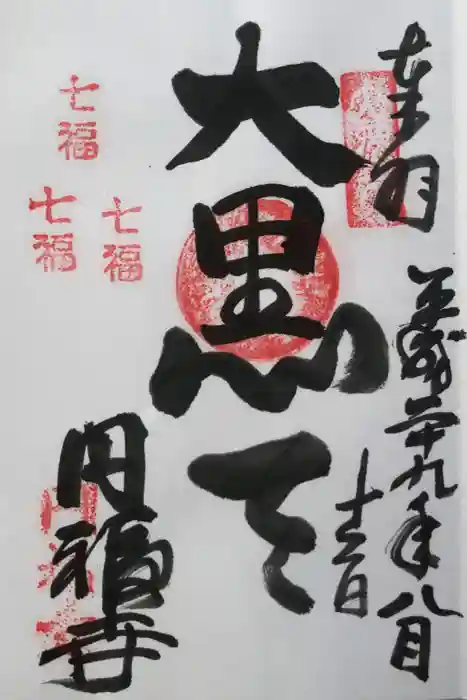 奉拝
平成二十九年八月
十二日
大黒天
七福
七福
七福
円福寺